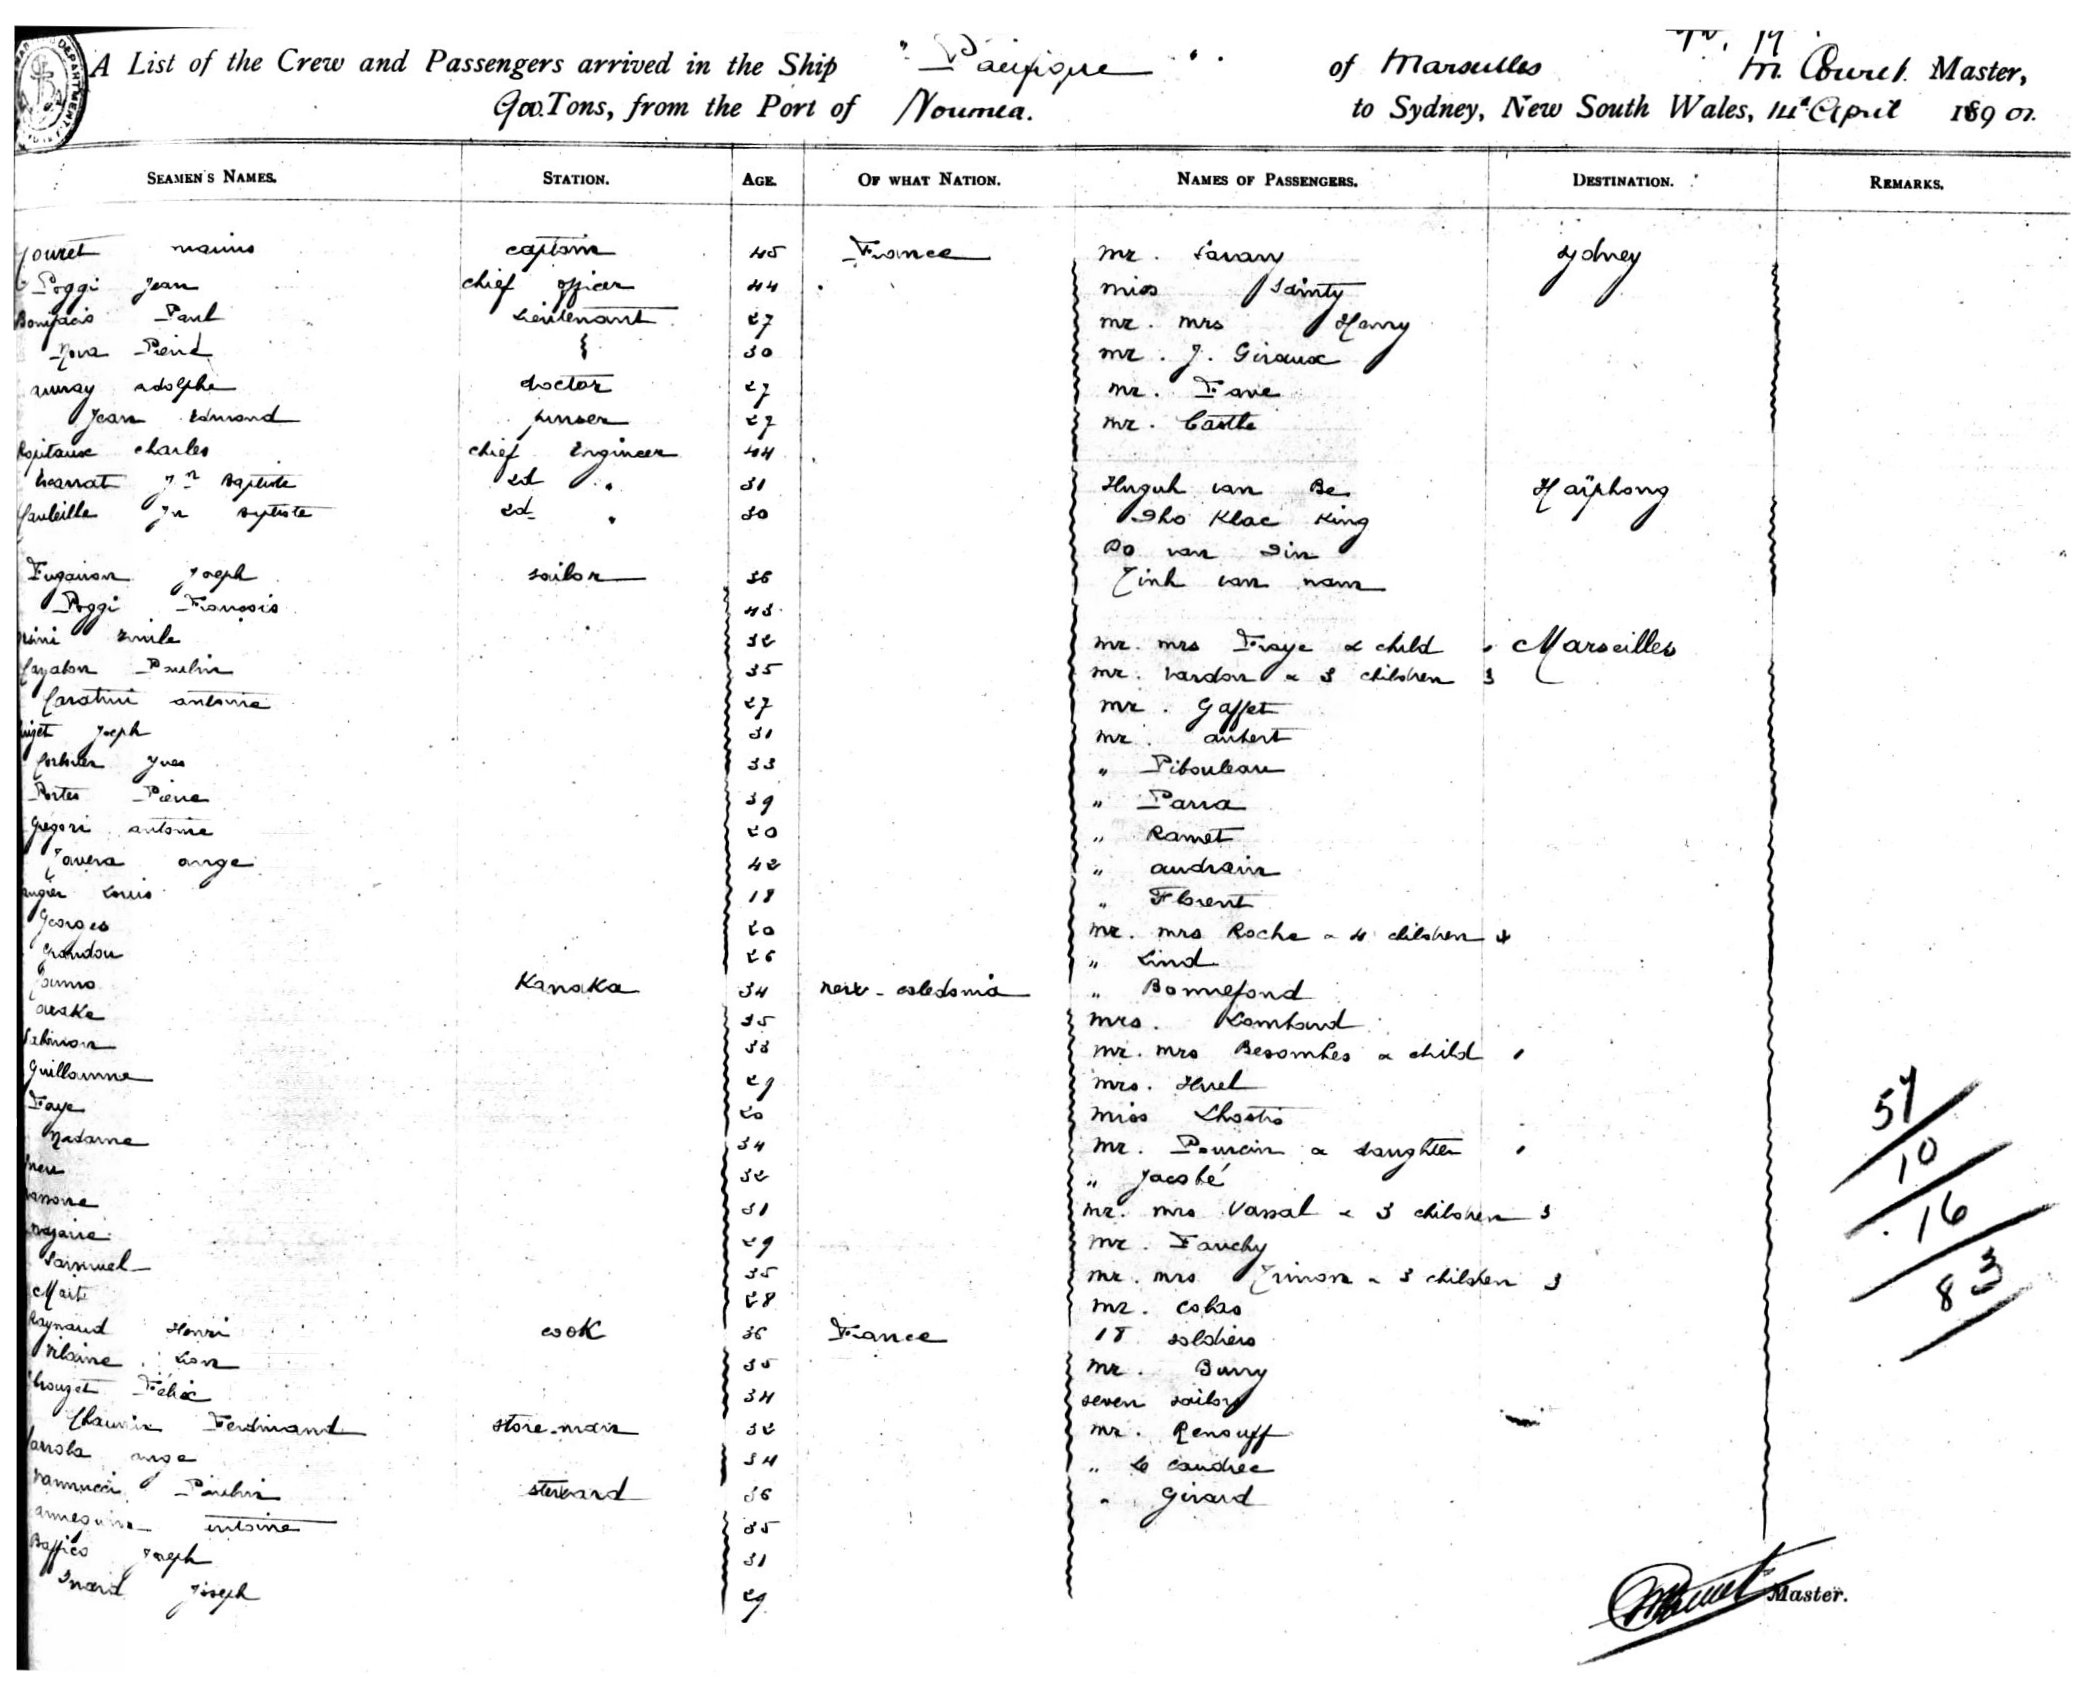 A List of the Crew and Passengers arrived in the Ship "Pacifique" of Marseilles M. Couret Master,
900 Tons, from the Port of Noumea. to Sydney, New South Wales, 14th April 1890
SEAMEN'S NAMES. STATION. AGE. OF WHAT NATION. NAMES OF PASSENGERS. DESTINATION. REMARKS.
Couret Marius captain 45 France Mr. Savary Sydney
Poggi Jean chief officer 44 Miss Sainty
Bonifacio Paul Lieutenant 27 Mr. Mrs Henry
Nova Pierre 30 Mr. J. Giraux
Adolphe doctor 27 Mr. Fave
Jean Edmond purser 27 Mr. Castle
Charles chief Engineer 44
Jn Baptiste 2d " 31 Huguh van Be Haïphong
Jn Baptiste 2d " 30 Dho Klac King
Do van Din
Joseph sailor 36 Tinh van nam
Poggi François 43
Emile 32 Mr. Mrs Faye & child Marseilles
Paulin 35 Mr. Vardon & 3 children 3
Antoine 27 Mr. Gaffet
Joseph 31 Mr. Aubert
Yves 33 " Pibouleau
Portes Pierre 39 " Parra
Gregori Antoine 20 " Ramet
Tavera Ange 42 " Audrain
Louis 18 " Florent
Georges 20 Mr. Mrs Roche & 4 children 4
26 " Lind
Kanaka 34 New-Caledonia " Bonnefond
35 Mrs. Lombard
33 Mr. Mrs Besombes & child
Guillaume 29 Mrs. Huel
Faye 20 Miss Lhostis
Madame 34 Mr. Pourcin & daughter
32 " Jacobé
31 Mr. Mrs Vassal & 3 children 3
29 Mr. Fauchy
Samuel 35 Mr. Mrs Trinon & 3 children 3
28 Mr. Colas
Raynaud Henri cook 36 France 18 soldiers
Léon 35 Mr. Burry
Félix 34 seven sailors
Ferdinand store-man 32 Mr. Renouff
Ange 34 " Le Caudrec
Vannucci Paulin steward 36 " Girard
Antoine 35
Baffico Joseph 31
Joseph 29
57
10
16
83
Master.